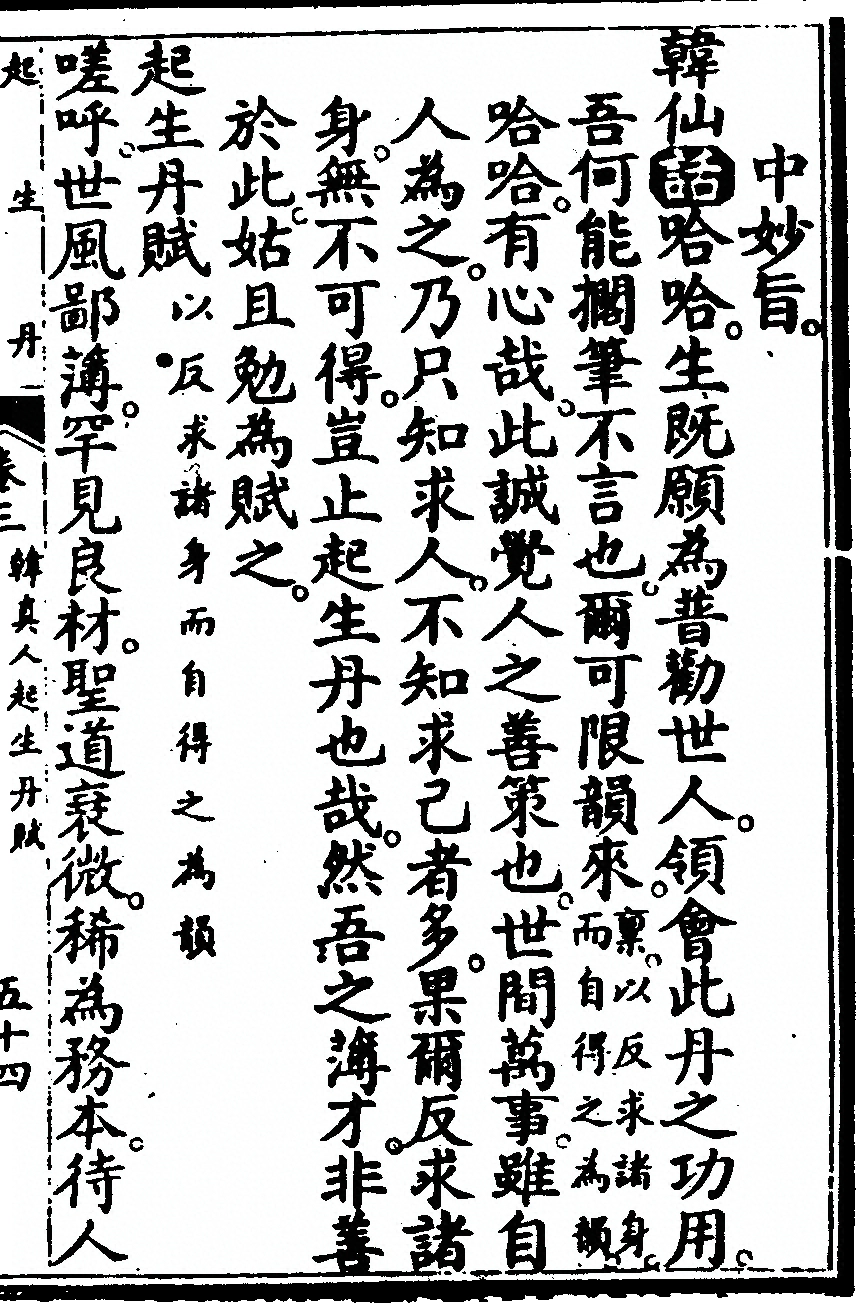 中妙旨。
韓仙語哈哈。生既願為普勸世人。領會此丹之功用。
吾何能擱筆不言也。爾可限韻來。稟。以反求諸身。而自得之為韻。
哈哈。有心哉。此誠覺人之善策也。世間萬事。雖自
人為之。乃只知求人。不知求己者多。果爾反求諸
身。無不可得。豈止起生丹也哉。然吾之薄才。非善
於此。姑且勉為賦之。
起生丹賦 以反求諸身而自得之為韻
嗟呼。世風鄙薄。罕見良材。聖道衰微。稀為務本。待人
起生丹 卷三 韓真人起生丹賦 五十四